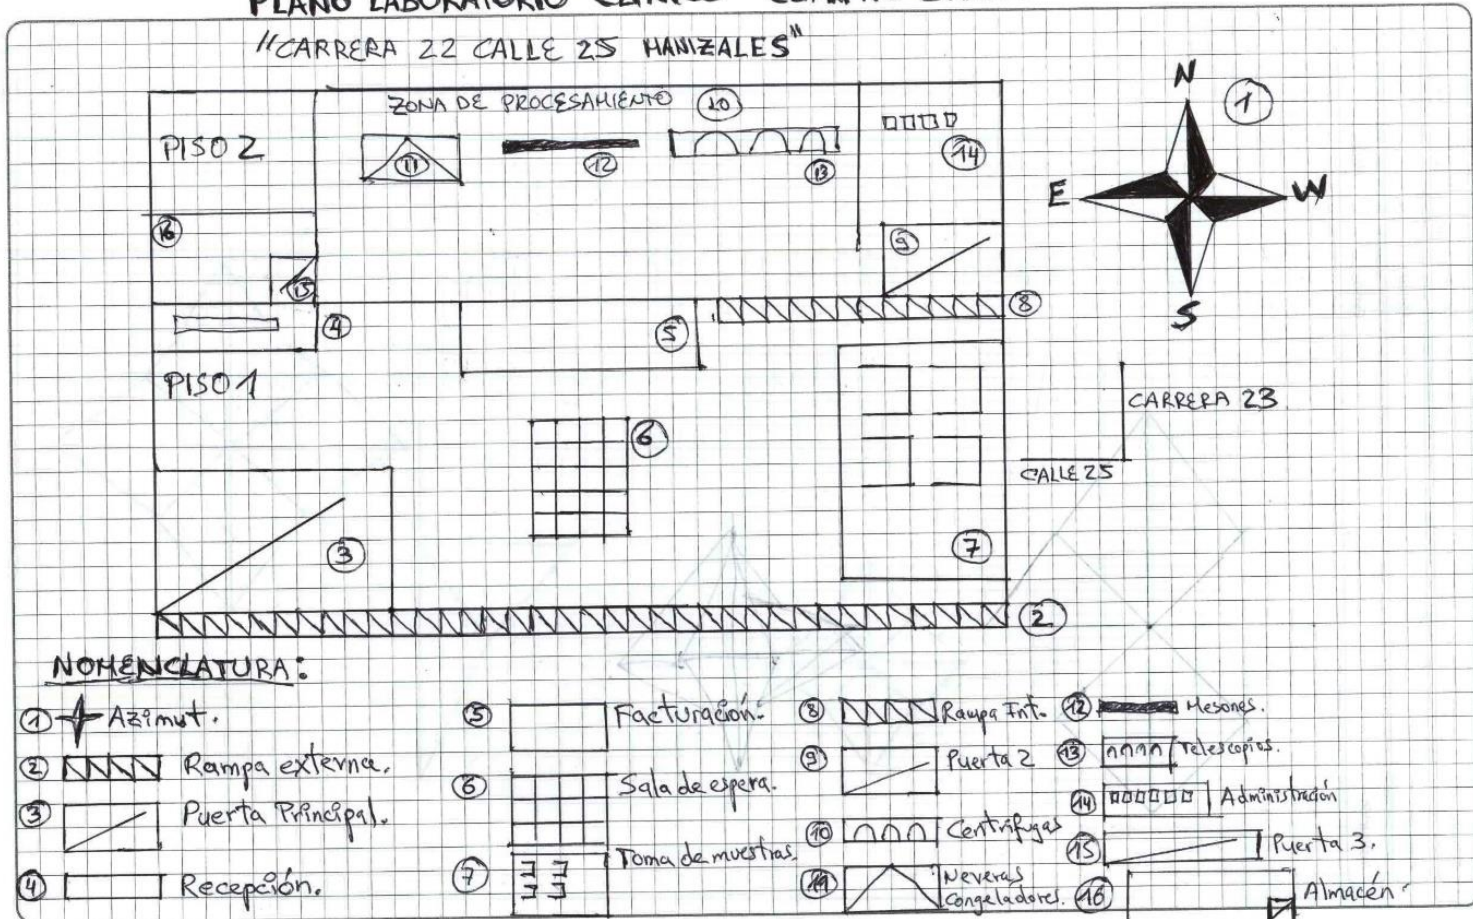 PLANO LABORATORIO CLINICO
"CARRERA 22 CALLE 25 MANIZALES"
ZONA DE PROCESAMIENTO 10
PISO 2
11
12
13
14
N
1
E
W
S
16
9
15
4
5
8
PISO 1
6
CARRERA 23
CALLE 25
3
7
2
NOMENCLATURA:
1 Azimut.
2 Rampa externa.
3 Puerta Principal.
4 Recepción.
5 Facturación.
6 Sala de espera.
7 Toma de muestras.
8 Rampa Int.
9 Puerta 2
10 Centrífugas
11 Neveras
Congeladores.
12 Mesones.
13 Telescopios.
14 Administración
15 Puerta 3.
16 Almacén